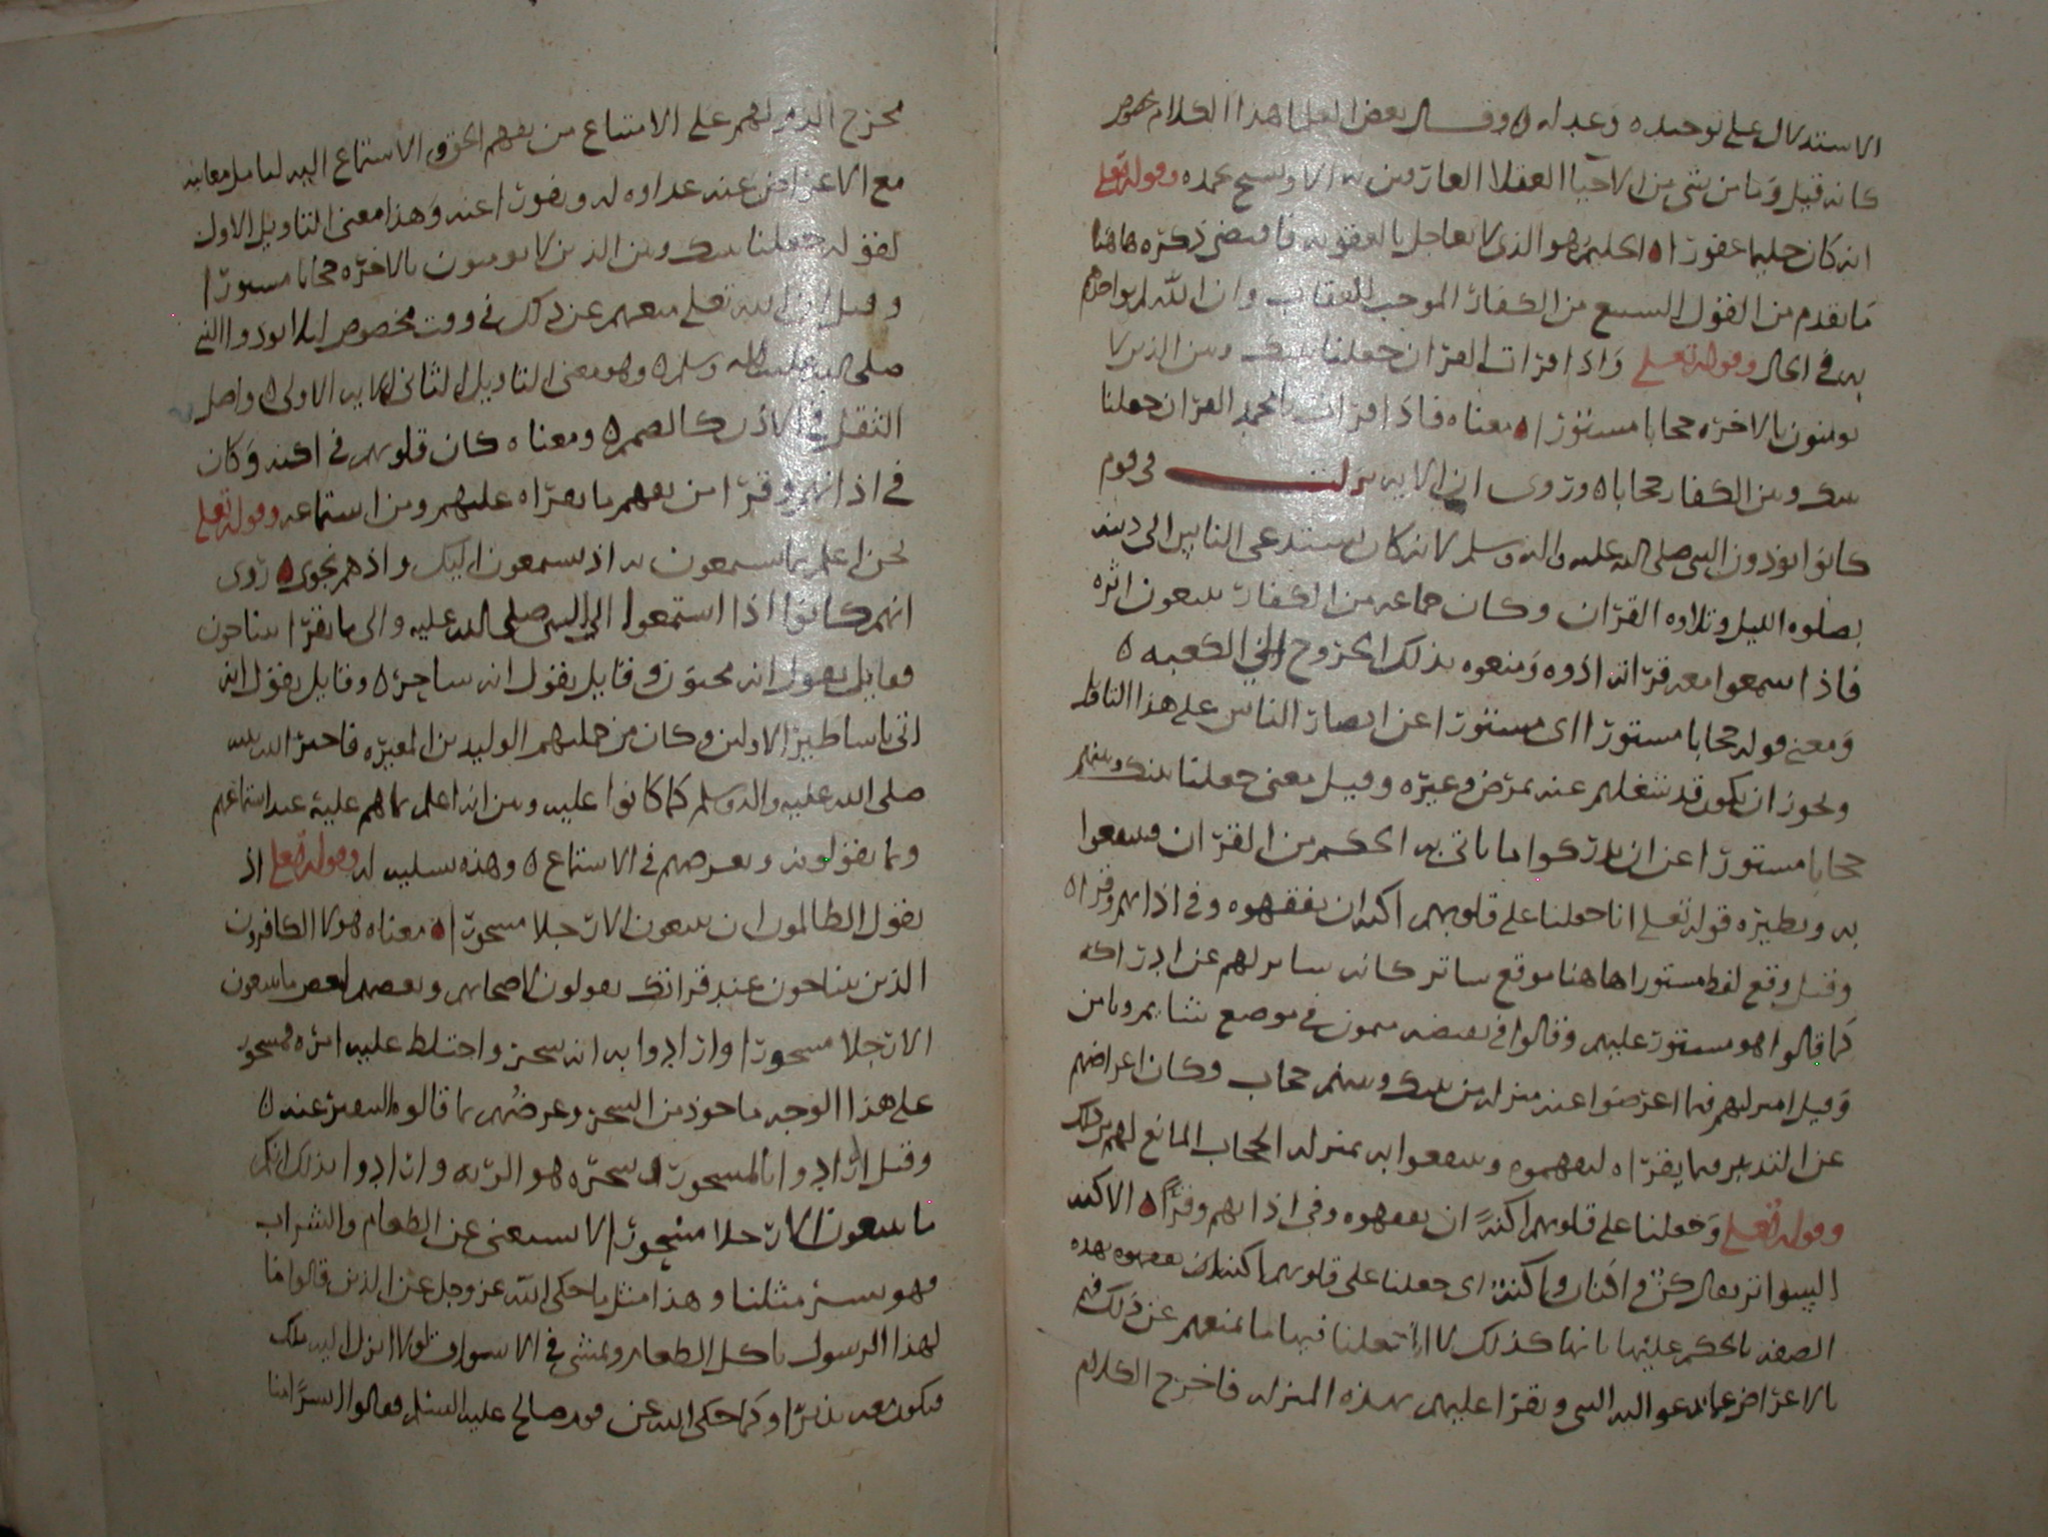 الاستدلال على توحيده وعدله ه وقال بعض العلما هذا الكلام مخصوص
كانه قيل وما من شى من الاحيا العقلا العارفين به الا ويسبح بحمده وقوله تعلى
انه كان حليما غفورا ه الحليم هو الذى لا يعاجل بالعقوبه فاقتضى ذكره هاهنا
ما تقدم من القول الشنيع من الكفار الموجب للعقاب وان الله لم يواخذهم
به فى الحال وقوله تعلى واذا قرات القران جعلنا بينك وبين الذين لا
يومنون بالاخره حجابا مستورا ه معناه فاذا قرات يا محمد القران جعلنا
بينك وبين الكفار حجابا ه وروى ان الايه نزلت فى قوم
كانوا يوذون النبى صلى الله عليه واله وسلم لانه كان يستدعى الناس الى دينه
بصلوه الليل وتلاوه القران وكان جماعه من الكفار يتبعون اثره
فاذا سمعوا معه قراته اذوه ومنعوه بذلك الخروج الى الكعبه ه
ومعنى قوله حجابا مستورا اى مستورا عن ابصار الناس على هذا
ويجوز ان يكون قد شغلهم عنه بمرض وغيره وقيل معنى جعلنا بينك وبينهم
حجابا مستورا عن ان يدركوا ما ياتى به الحكم من القران فينتفعوا
به ونظيره قوله تعلى انا جعلنا على قلوبهم اكنه ان يفقهوه وفى اذانهم وقرا ه
وقيل وقع لفظ مستورا هاهنا موقع ساتر كانه ساتر لهم عن ادراكه
كما قالوا هو مستور عليهم وقالوا فى نقيضه ميمون فى موضع شايم ويامن
وقيل انزلهم فيما اعرضوا عنه منزله من بينك وبينهم حجاب وكان اعراضهم
عن التدبر فيما يقراه ليفهموه وينتفعوا به بمنزله الحجاب المانع لهم من ذلك
وقوله تعلى وجعلنا على قلوبهم اكنة ان يفقهوه وفى اذانهم وقرا ه الاكنه
السواتر يقال كن واكنان واكنة اى جعلنا على قلوبهم اكنه ان يفقهوه بهذه
الصفه بالحكم عليها بانها كذلك لا جعلنا فيها ما يمنعهم عن ذلك فهم
بالاعراض عما يدعو اليه النبى ويقرا عليهم بهذه المنزله فاخرج الكلام
مخرج الذم لهم على الامتناع من تفهم الحق والاستماع اليه لتامل معانيه
مع الاعراض عنه عداوه له ونفورا عنه وهذا معنى التاويل الاول
لقوله جعلنا بينك وبين الذين لا يومنون بالاخره حجابا مستورا
وقيل ان الله تعلى منعهم عن ذلك فى وقت مخصوص ليلا يوذوا النبى
صلى الله عليه واله وسلم ه وهو معنى التاويل الثانى للايه الاولى ه واصل
الثقل فى الاذن كالصمم ه ومعناه كان قلوبهم فى اكنه وكان
فى اذانهم وقرا من تفهم ما يقراه عليهم ومن استماعه وقوله تعلى
نحن اعلم بما يستمعون به اذ يستمعون اليك واذ هم نجوى ه روى
انهم كانوا اذا استمعوا الى النبى صلى الله عليه والى ما يقرا يتناجون
فقايل يقول انه مجنون وقايل يقول انه ساحر ه وقايل يقول انه
اتى باساطير الاولين وكان من جملتهم الوليد بن المغيره فاخبر الله نبيه
صلى الله عليه واله وسلم كما كانوا عليه وبين انه اعلم بما هم عليه عند استماعهم
وبما يقولونه وبغرضهم فى الاستماع ه وهذه تسليه له وقوله تعلى اذ
يقول الظالمون ان تتبعون الا رجلا مسحورا ه معناه هولا الكافرون
الذين يتناجون عند قراتك يقولون لاصحابهم وبعضهم لبعض ما تتبعون
الا رجلا مسحورا وارادوا به انه سحر واختلط عليه امره فمسحور
على هذا الوجه ماخوذ من السحر وغرضهم بما قالوه التنفير عنه ه
وقيل ارادوا بالمسحور ان سحره هو الريه وارادوا بذلك انكم
ما تتبعون الا رجلا مسحورا لا يستغنى عن الطعام والشراب
فهو بشر مثلنا وهذا مثل ما حكى الله عز وجل عن الذين قالوا ما
لهذا الرسول ياكل الطعام ويمشى فى الاسواق لولا انزل اليه ملك
فيكون معه نذيرا وكما حكى الله عن قوم صالح عليه السلم فقالوا ابشرا منا